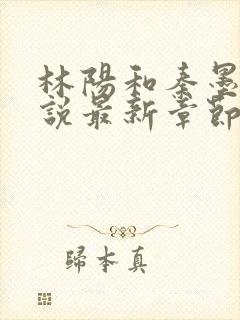 林陽和秦墨
說最新章節
歸本真